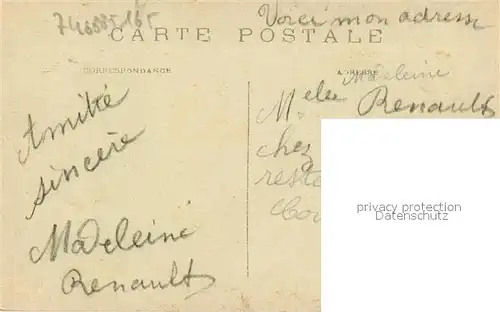 74658516
Voici mon adresse
CARTE POSTALE
CORRESPONDANCE
ADRESSE
Amitié
sincère
Madeleine
Renault
Madeleine
Melle Renault
chez
reste
privacy protection
Datenschutz